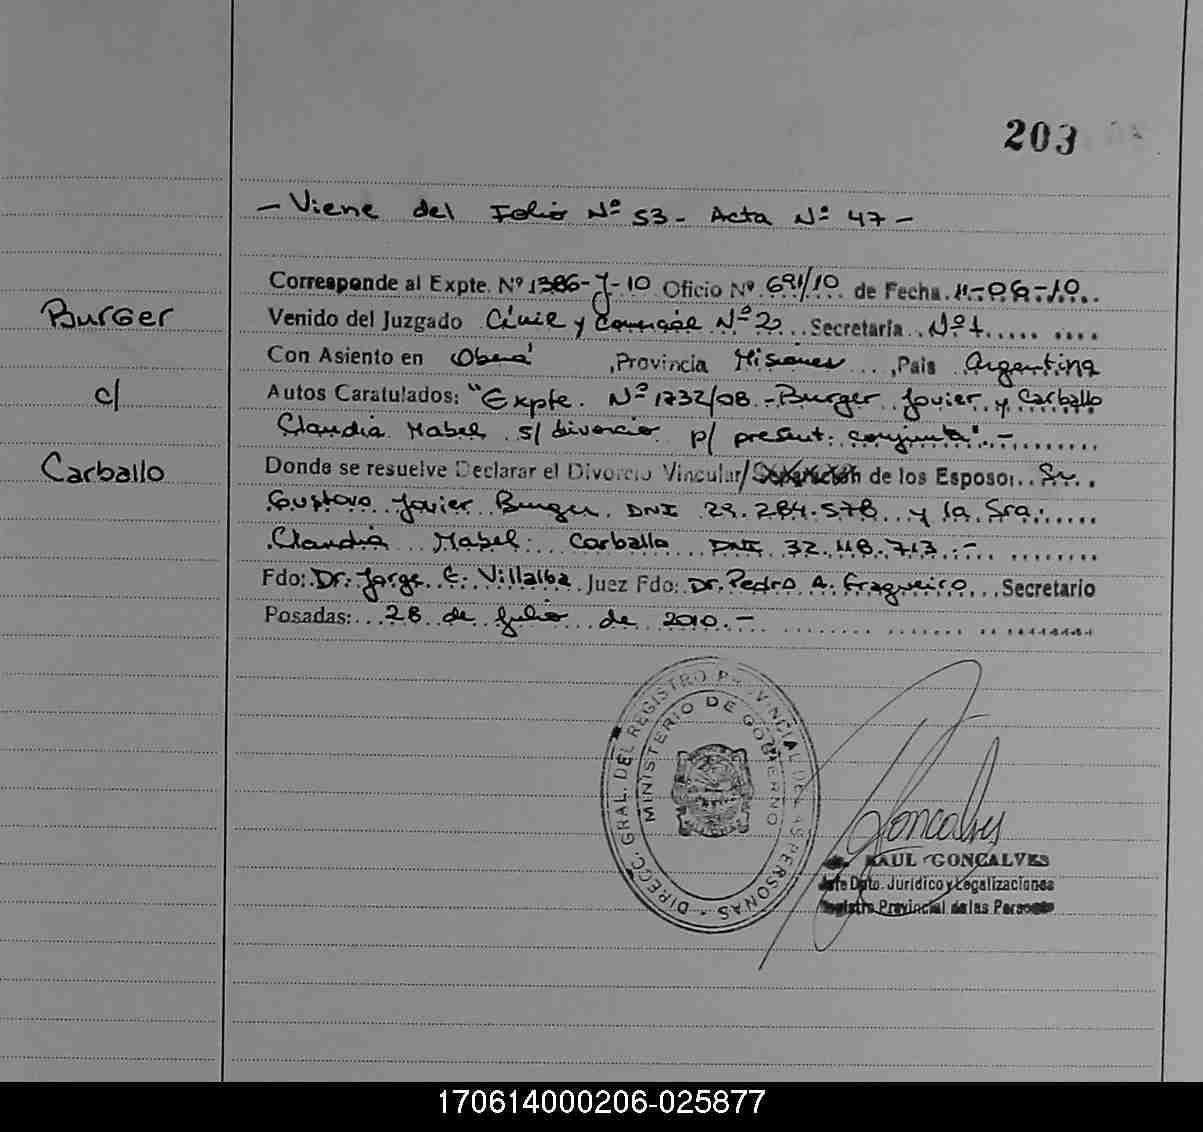 203
- Viene del Folio Nº 53 - Acta Nº 47 -
Corresponde al Expte. Nº 1386-J-10 Oficio Nº 691/10 de Fecha 11-06-10
Burger
Venido del Juzgado Civil y Comercial Nº 2 Secretaría Nº 1
Con Asiento en Oberá, Provincia Misiones, Pais Argentina
c/
Autos Caratulados: "Expte. Nº 1732/08 - Burger Javier y Carballo
Claudia Mabel s/ divorcio p/ present. conjunta".-
Carballo
Donde se resuelve Declarar el Divorcio Vincular/Separación de los Esposos: Sr.
Gustavo Javier Burger DNI 29.284.578 y la Sra.
Claudia Mabel Carballo DNI 32.118.713.-
Fdo: Dr. Jorge E. Villalba Juez Fdo: Dr. Pedro A. Fragueiro Secretario
Posadas: 28 de Julio de 2010.-
DIRECC. GRAL. DEL REGISTRO PROVINCIAL DE LAS PERSONAS
MINISTERIO DE GOBIERNO
Goncalves
RAUL GONCALVES
Jefe Dpto. Jurídico y Legalizaciones
Registro Provincial de las Personas
170614000206-025877